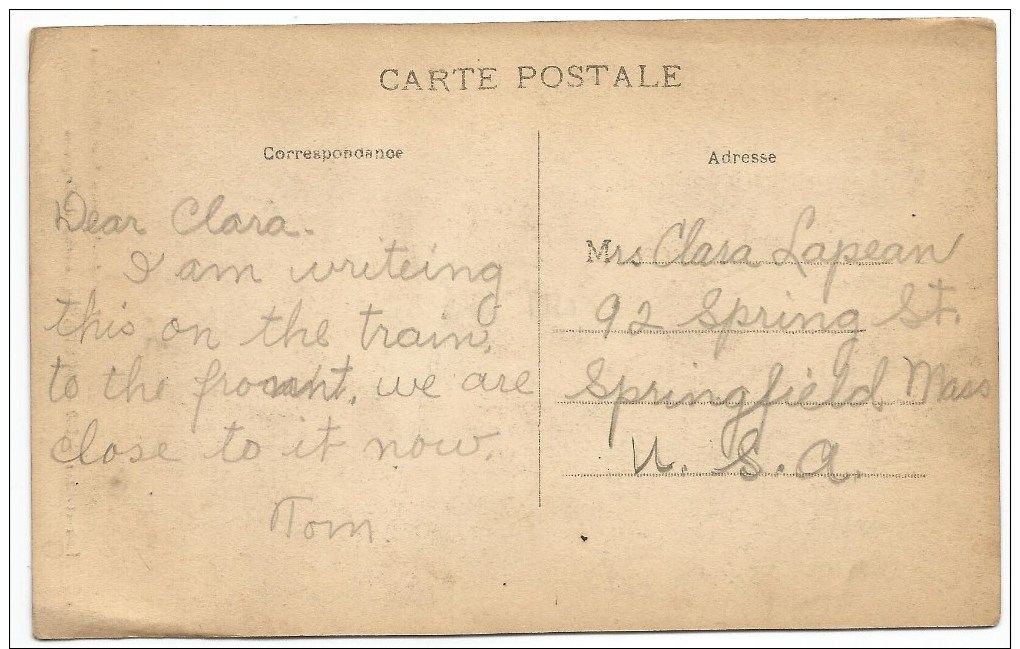 CARTE POSTALE
Correspondance
Dear Clara.
I am writeing
this on the train,
to the front, we are
close to it now.
Tom.
Adresse
Mrs Clara Lapean
92 Spring St.
Springfield Mass
U. S. A.